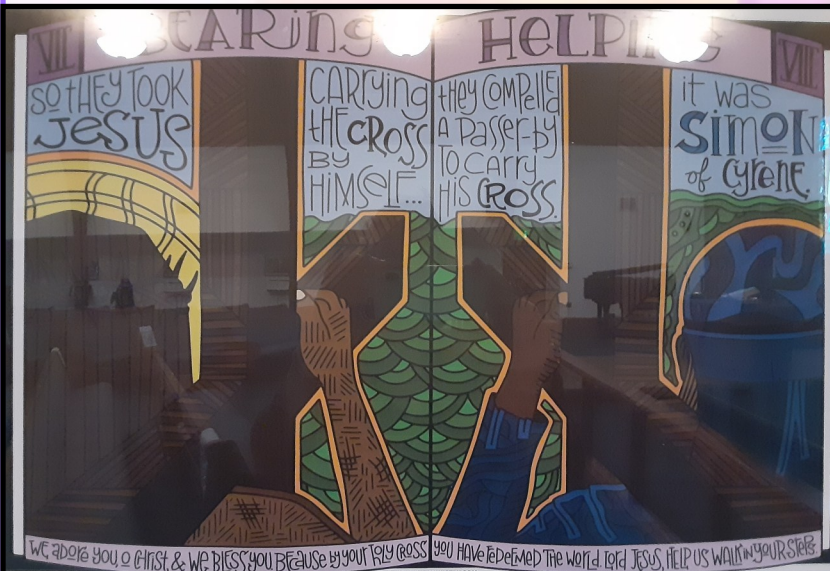 VII BEARiNg
so tHEy TOOK
JESUS
CARRyiNg
tHE CROSS
By
HiMSELF...
HELPiNG VIII
tHEy COMPELLEd
A PASSER-by
TO CARRy
HiS CROSS.
it WAS
SiMON
of CyRENE.
WE AdORE yOU, O CHRiSt, & WE BLESS yOU, BECAUSE by yOUR HOLy CROSS
yOU HAVE REdEEMEd THE WORLd. LORd JESUS, HELP US WALK iN yOUR StEPS.